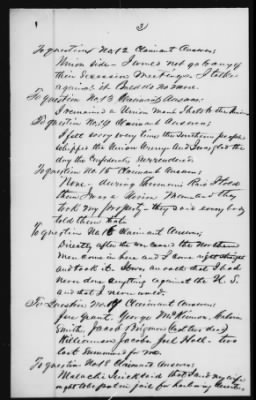 3
To question No 12 Claimant Answers
Union side. I would not go to any of
their Secession Meetings. I talked
against it but did no more.
To question No 13 Claimant Answers
I remained a Union man I stuck to the Union
To question No 14 Claimant Answers
I felt sorry every time the Southern people
whipped the Union Army. And I was glad the
day the Confederacy surrendered
To question No 15 Claimant Answers
None. during Shermans Raid I told
them I was a Union Man and they
took my property they said every body
told them that.
To question No 16 Claimant Answers
Directly after the war ceased the Northern
men came in here and I came
and took it. It was an oath that I had
never done anything against the U.S.
and that I never would.
To Question No 17 Claimant Answers
George McKinnon. Calvin
Smith, Jacob
Jacobs Joel Hall.
last Summoned for me.
To question No 18 Claimant Answers
Malachi Strickland that I and my wife
in jail for harboring deserters